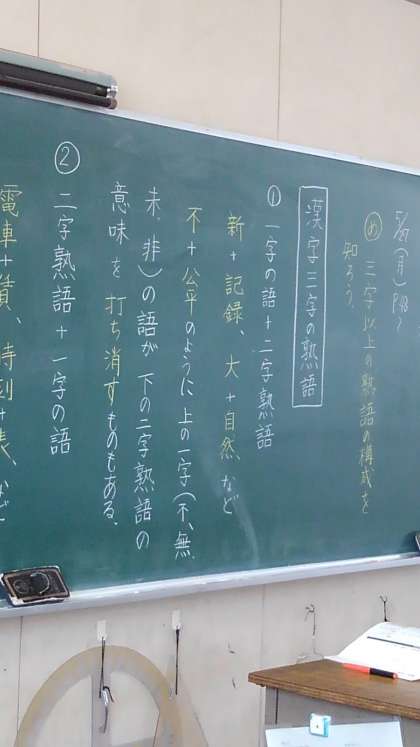 5/27(月) P48~
め 三字以上の熟語の構成を
知ろう。
漢字三字の熟語
① 一字の語+二字熟語
新+記録、大+自然、など
不+公平のように上の一字(不、無、
未、非)の語が下の二字熟語の
意味を打ち消すものもある。
② 二字熟語+一字の語
電車+賃、時刻+表、など